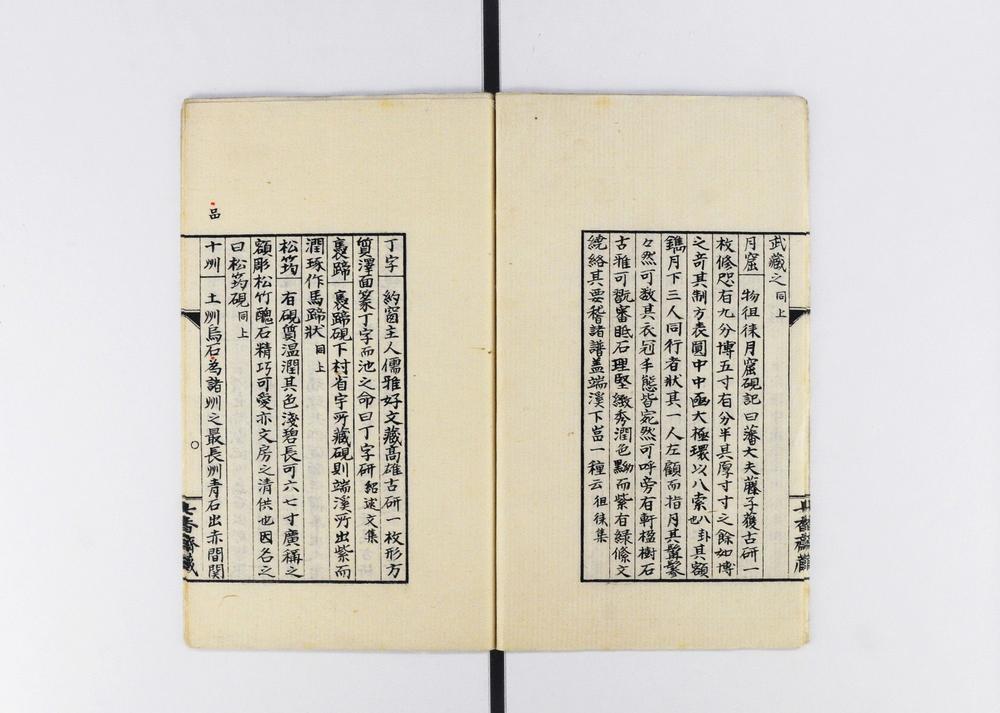 武藏之 同上
月窟 物徂徠月窟硯記曰蕃大夫藤子獲古研一
枚修咫有九分博五寸有分半其厚寸寸之餘如博
之奇其制方表圓中中函大極環以八索也八卦其額
鐫月下三人同行者狀其一人左顧而指月其鬚髯
々然可數其衣冠手態皆宛然可呼旁有軒楹樹石
古雅可翫審眡石理堅緻秀潤色黝而紫有綠絛文
繞絡其要稽諸譜盖端溪下嵓一種云 徂徠集
丁字 約窗主人儒雅好文藏髙雄古研一枚形方
質澤面篆丁字而池之命曰丁字研 紹述文集
裹蹄 裹蹄硯下村省字所藏硯則端溪所出紫而
潤琢作馬蹄狀 同上
松筠 有硯質温潤其色淺碧長可六七寸廣稱之
額彫松竹醜石精巧可愛亦文房之清供也因名之
曰松筠硯 同上
品
十州 土州烏石為諸州之最長州青石出赤間関